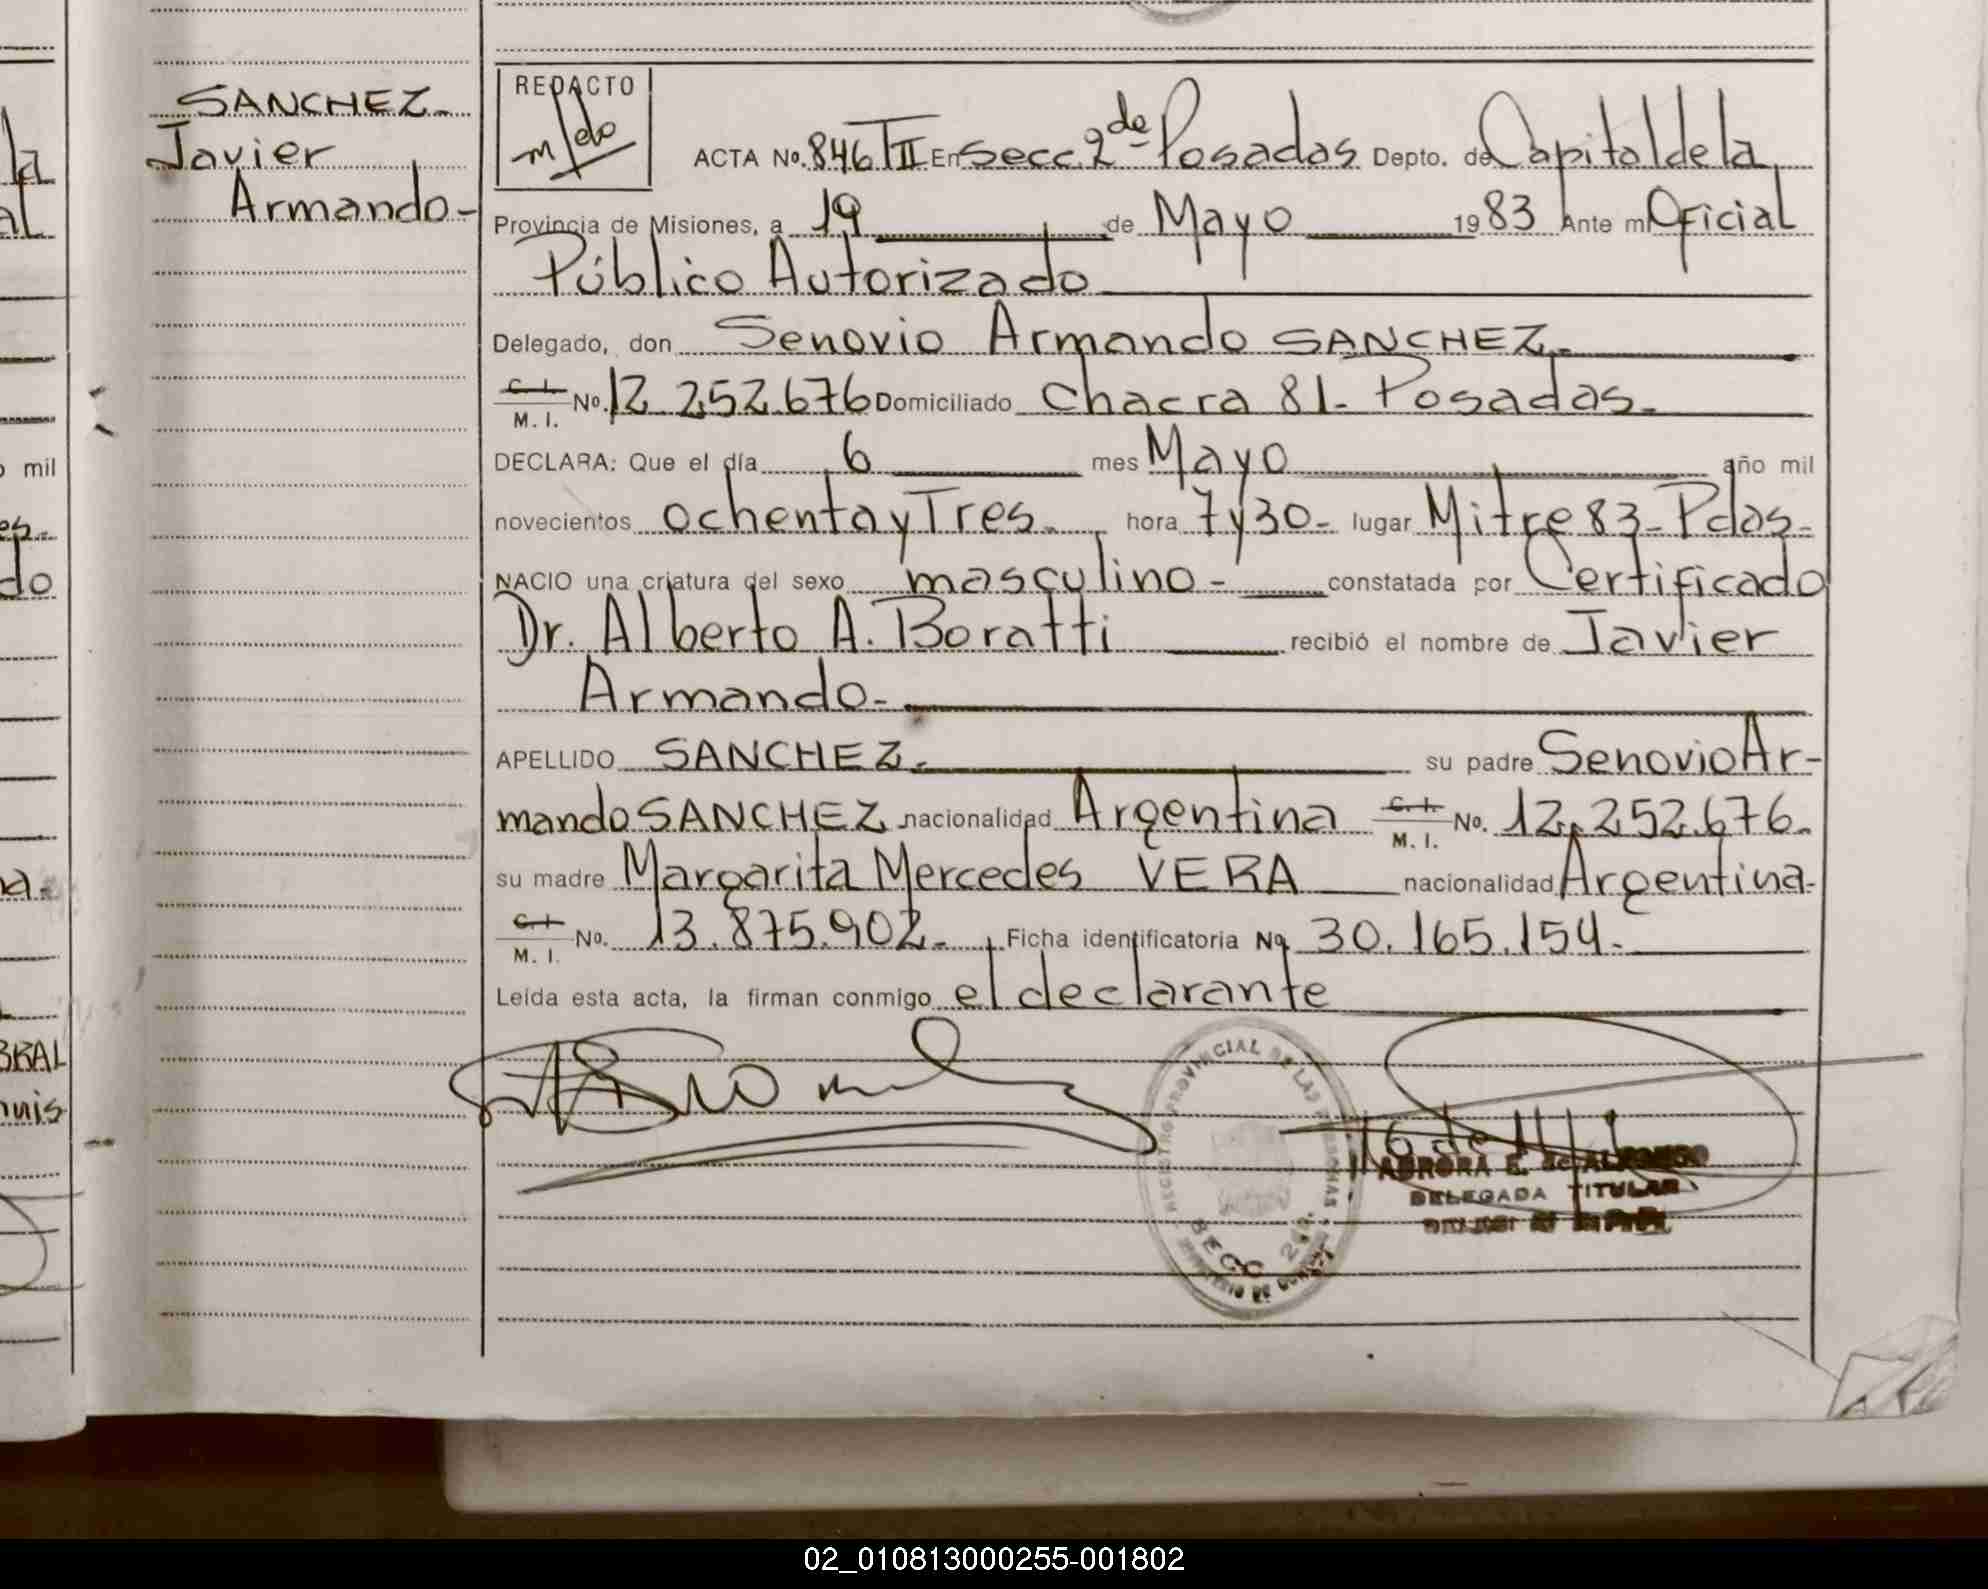 SANCHEZ-
Javier
Armando-
REDACTO
Melo
ACTA No. 846 TII En Secc. 2da- Posadas Depto. de Capital de la
Provincia de Misiones, a 19 de Mayo 1983 Ante mi Oficial
Público Autorizado
Delegado, don Senovio Armando SANCHEZ-
C. I. M. I. No. 12.252.676 Domiciliado Chacra 81- Posadas-
DECLARA: Que el día 6 mes Mayo año mil
novecientos ochenta y Tres- hora 7 y 30- lugar Mitre 83- Pdas-
NACIO una criatura del sexo masculino- constatada por Certificado
Dr. Alberto A. Boratti recibió el nombre de Javier
Armando-
APELLIDO SANCHEZ- su padre Senovio Ar-
mando SANCHEZ nacionalidad Argentina C. I. M. I. No. 12.252.676-
su madre Margarita Mercedes VERA nacionalidad Argentina-
C. I. M. I. No. 13.875.902- Ficha identificatoria No 30.165.154-
Leída esta acta, la firman conmigo el declarante
REGISTRO PROVINCIAL DE LAS PERSONAS
SECC 2da.
AURORA E. de ALFONSO
DELEGADA TITULAR
mil
do
BRAL
02_010813000255-001802